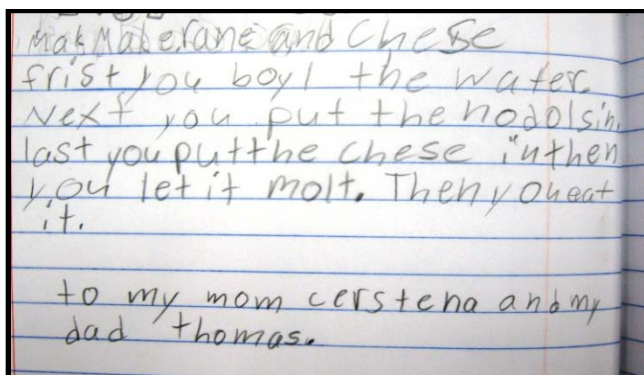 mak Makerane and Chese
frist you boyl the water.
Next you put the nodolsin.
last you putthe chese inthen
you let it molt. Then youeat
it.
to my mom cerstena and my
dad thomas.